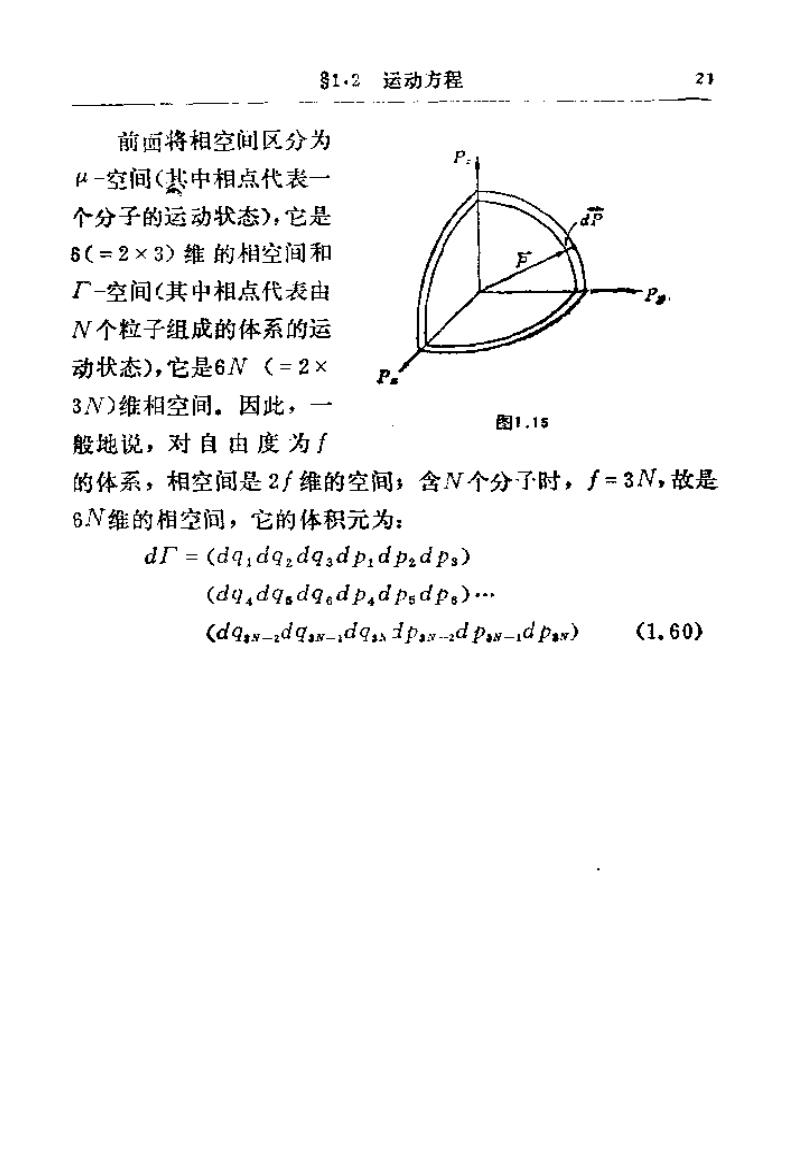 §1·2 运动方程 21
前面将相空间区分为
μ-空间(其中相点代表一
个分子的运动状态),它是
6(=2×3)维的相空间和
Γ-空间(其中相点代表由
N个粒子组成的体系的运
动状态),它是6N (=2×
3N)维相空间。因此,一
般地说,对自由度为f
P_z
dP⃗
P⃗
P_y
P_x
图1.15
的体系,相空间是2f维的空间;含N个分子时,f=3N,故是
6N维的相空间,它的体积元为:
dΓ = (dq₁dq₂dq₃dp₁dp₂dp₃)
(dq₄dq₅dq₆dp₄dp₅dp₆)…
(dq₃N₋₂dq₃N₋₁dq₃N dp₃N₋₂dp₃N₋₁dp₃N) (1.60)